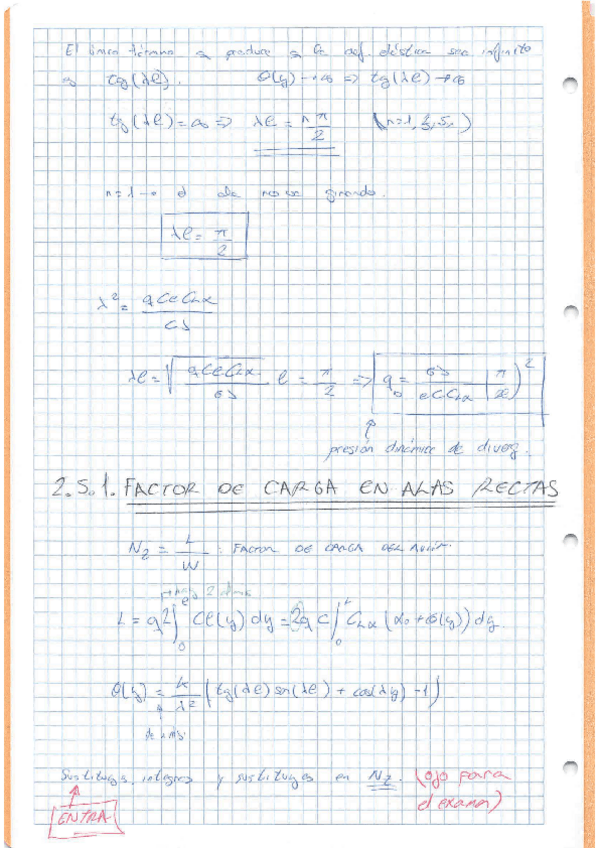 El único término q produce q la def. elástica sea infinito
es tg(λl). θ(y)→∞ ⇒ tg(λl)→∞
tg(λl)=∞ ⇒ λl = n π/2 (n=1,3,5,)
n=1 → el ala no se girando.
λl = π/2
λ² = qCeCLα / GJ
λl = √(qCeCLα / GJ) l = π/2 ⇒ q_D = GJ / eCCLα (π/2l)²
presión dinámica de diverg.
2.5.1. FACTOR DE CARGA EN ALAS RECTAS
N_Z = L/W : FACTOR DE CARGA DEL AVIÓN.
hay 2 alas
L = q2∫₀^l Cl(y) dy = 2qC∫₀^l CLα (α₀+θ(y)) dy.
θ(y) = K/λ² (tg(λl) sen(λl) + cos(λy) -1)
Sustituyes, integras y sustituyes en N_Z. (ojo para
el examen)
ENTRA